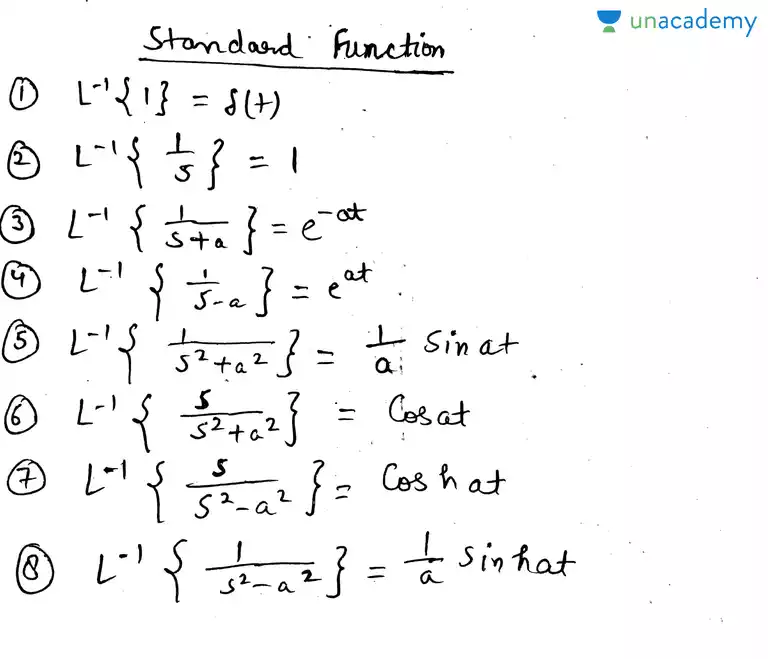 unacademy
Standard Function
① L⁻¹{1} = δ(t)
② L⁻¹{1/s} = 1
③ L⁻¹{1/(s+a)} = e^(-at)
④ L⁻¹{1/(s-a)} = e^(at)
⑤ L⁻¹{1/(s²+a²)} = 1/a Sin at
⑥ L⁻¹{s/(s²+a²)} = Cos at
⑦ L⁻¹{s/(s²-a²)} = Cos h at
⑧ L⁻¹{1/(s²-a²)} = 1/a Sin hat